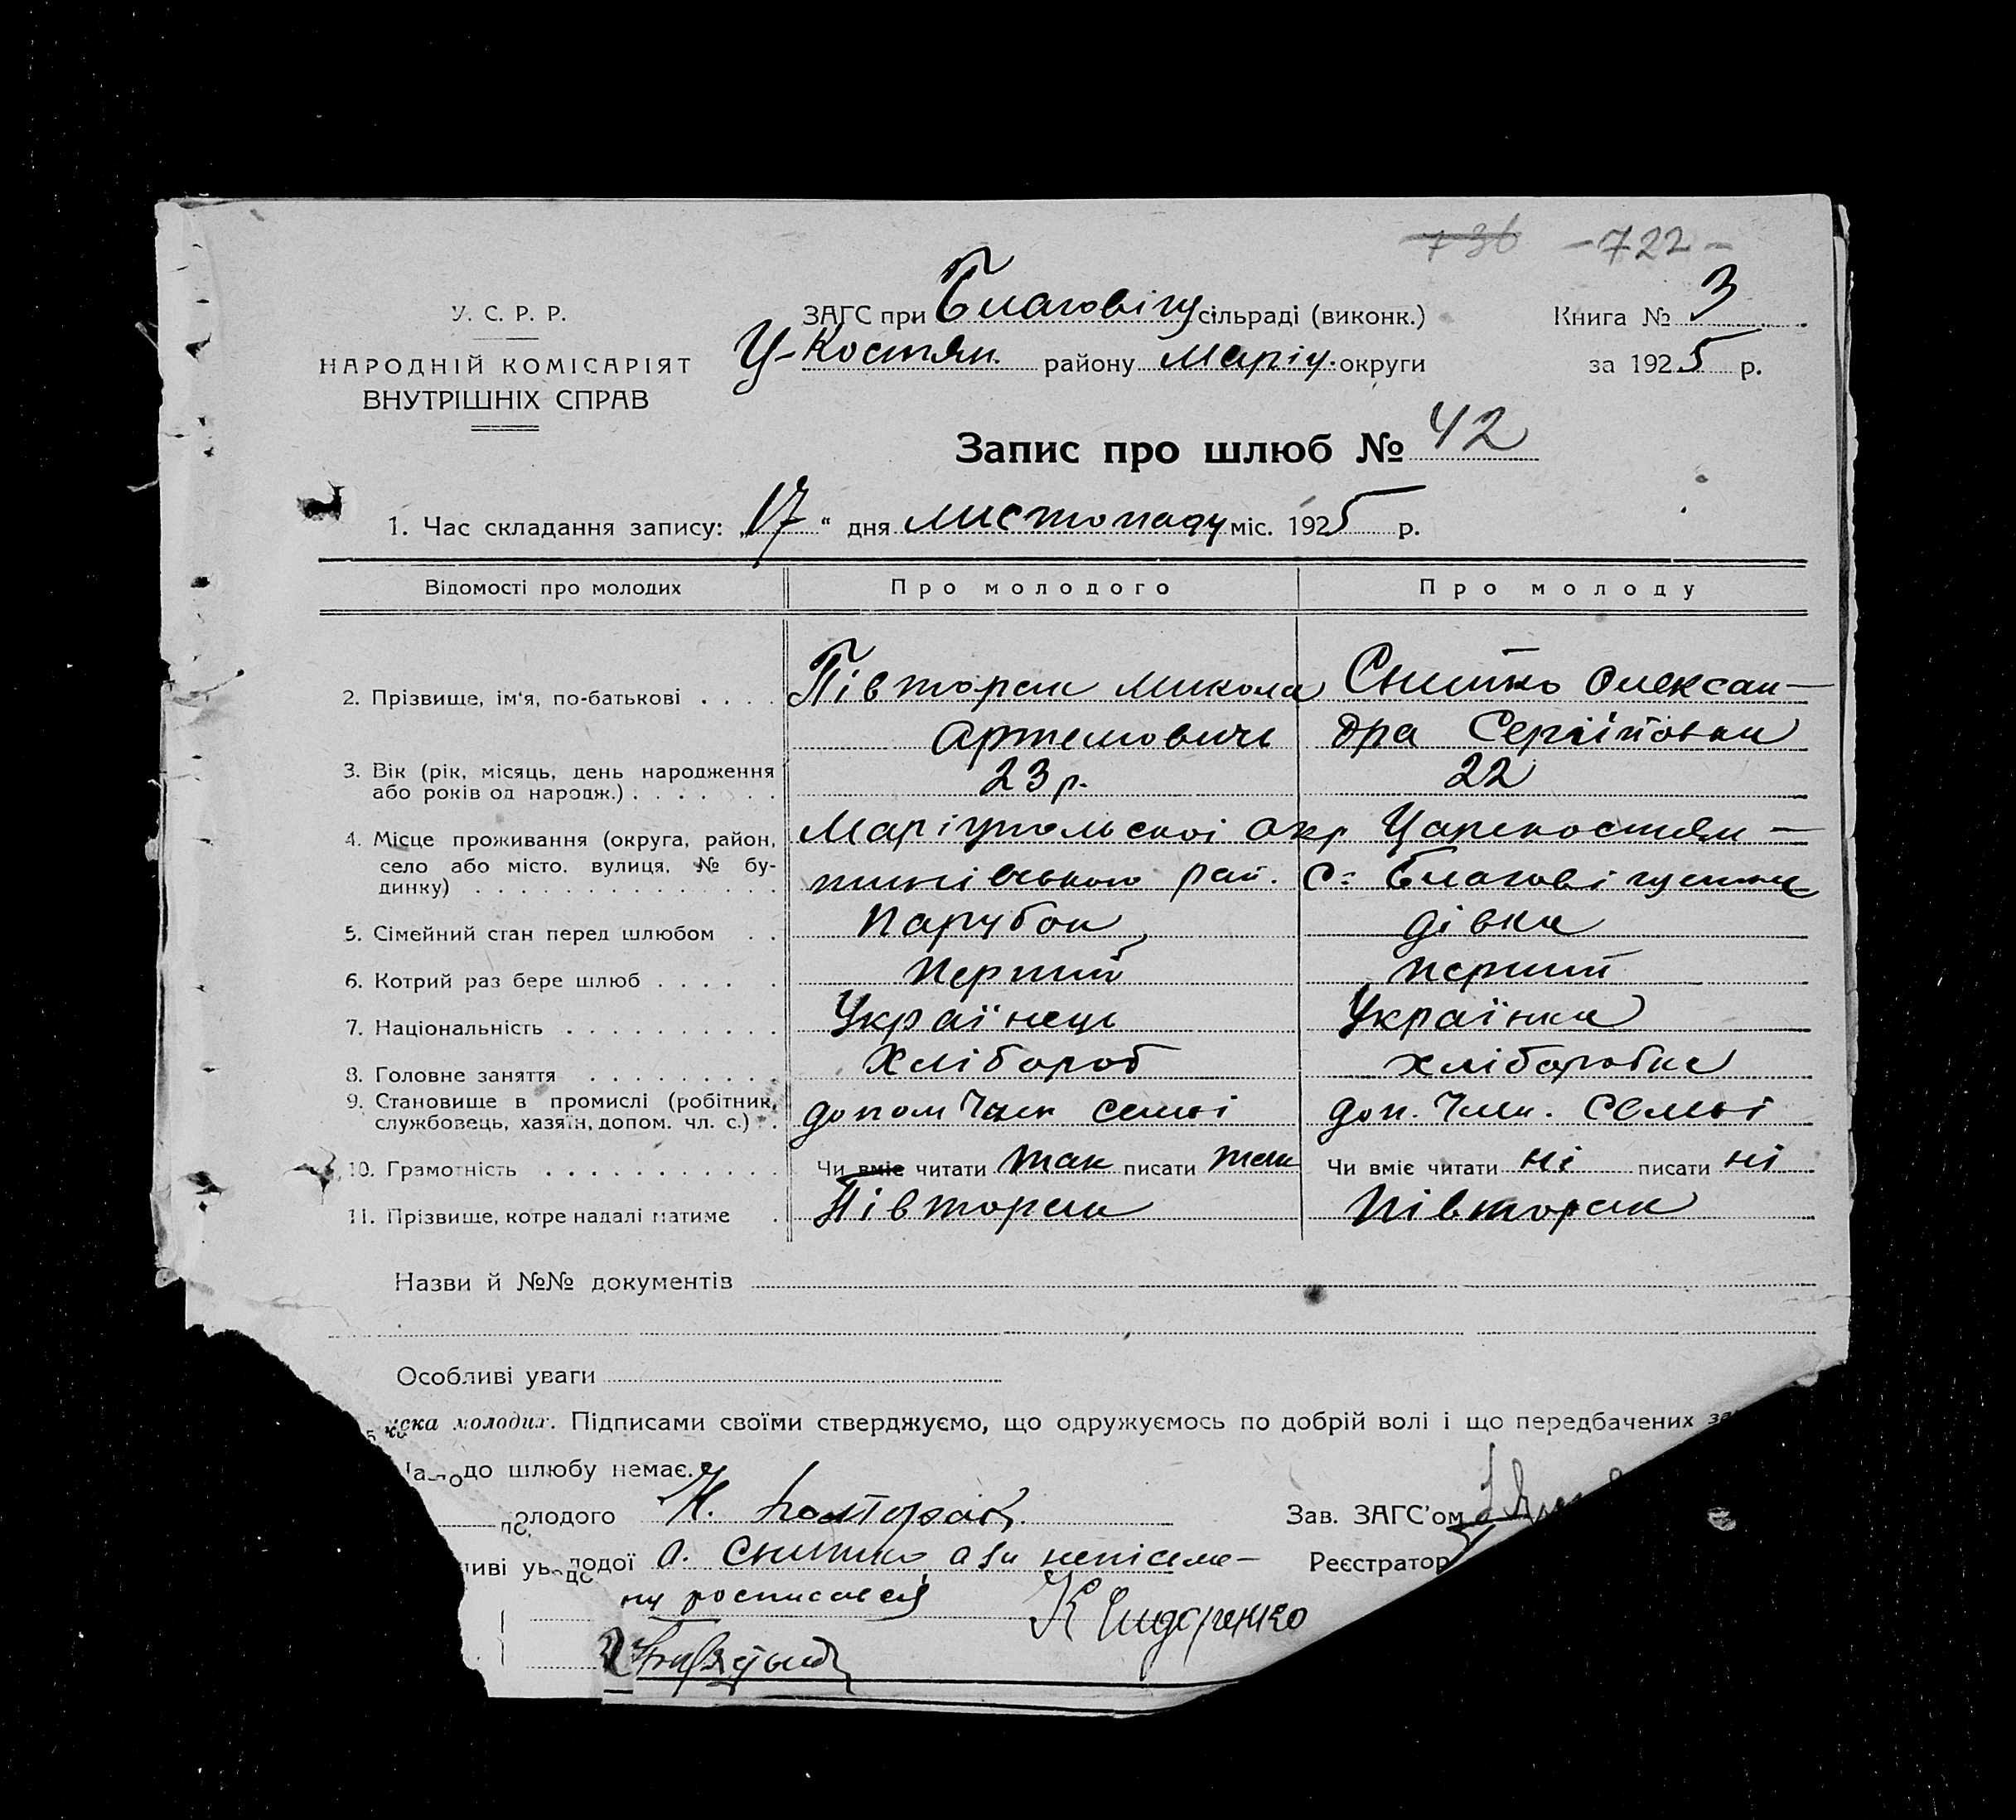 736 - 722 -
У. С. Р. Р.
НАРОДНІЙ КОМІСАРІЯТ
ВНУТРІШНІХ СПРАВ
ЗАГС при Благовіщ сільраді (виконк.)
Ц-Костян. району Маріу. округи
Книга № 3
за 1925 р.
Запис про шлюб № 42
1. Час складання запису: „17“ дня листопаду міс. 1925 р.
Відомості про молодих Про молодого Про молоду
2. Прізвище, ім'я, по-батькові . . . . Півторак Микола Снитко Олексан-
Артемович дра Сергіївна
3. Вік (рік, місяць, день народження
або років од народж.) . . . . . . . 23 р. 22
4. Місце проживання (округа, район, Маріупольскоі Окр Царекостян-
село або місто, вулиця, № бу-
динку) . . . . . . . . . . . . . . тинівського рай. С: Благовіщенка
5. Сімейний стан перед шлюбом . . Парубок дівка
6. Котрий раз бере шлюб . . . . . Перший перший
7. Національність . . . . . . . . . . Українець Українка
8. Головне заняття . . . . . . . . . Хлібороб хліборобка
9. Становище в промислі (робітник,
службовець, хазяїн, допом. чл. с.) . . допом Член семьі доп. Член. Семьі
10. Грамотність . . . . . . . . . . . Чи вміє читати так писати так Чи вміє читати ні писати ні
11. Прізвище, котре надалі матиме . Півторак Півторак
Назви й №№ документів
Особливі уваги
молодих. Підписами своїми стверджуємо, що одружуємось по добрій волі і що передбачених
до шлюбу немає.
олодого Н. Полторак Зав. ЗАГС'ом
лодої О. Снитко а за непісьме- Реєстратор
ну росписался К Сидоренко